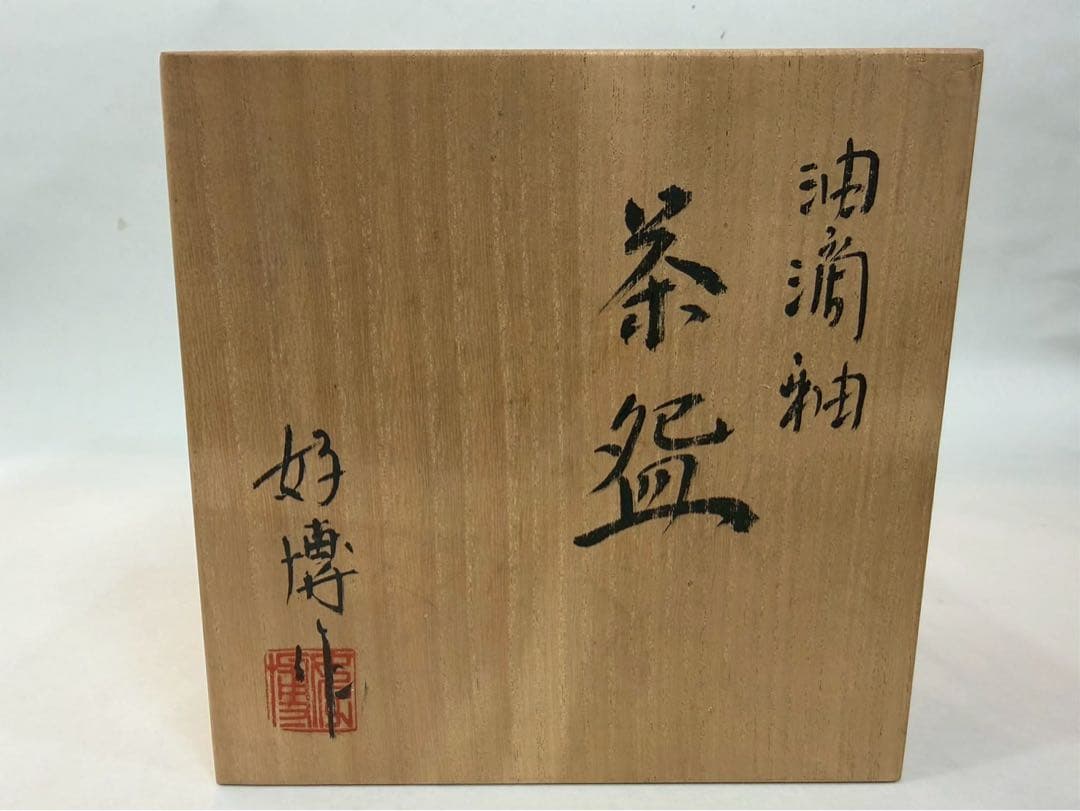 油滴釉
茶盌
好博作